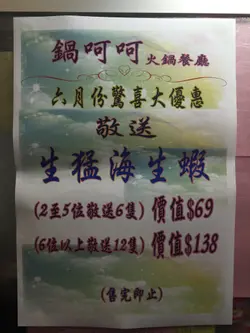 鍋呵呵火鍋餐廳
六月份驚喜大優惠
敬送
生猛海生蝦
(2至5位敬送6隻) 價值$69
(6位以上敬送12隻) 價值$138
(售完即止)